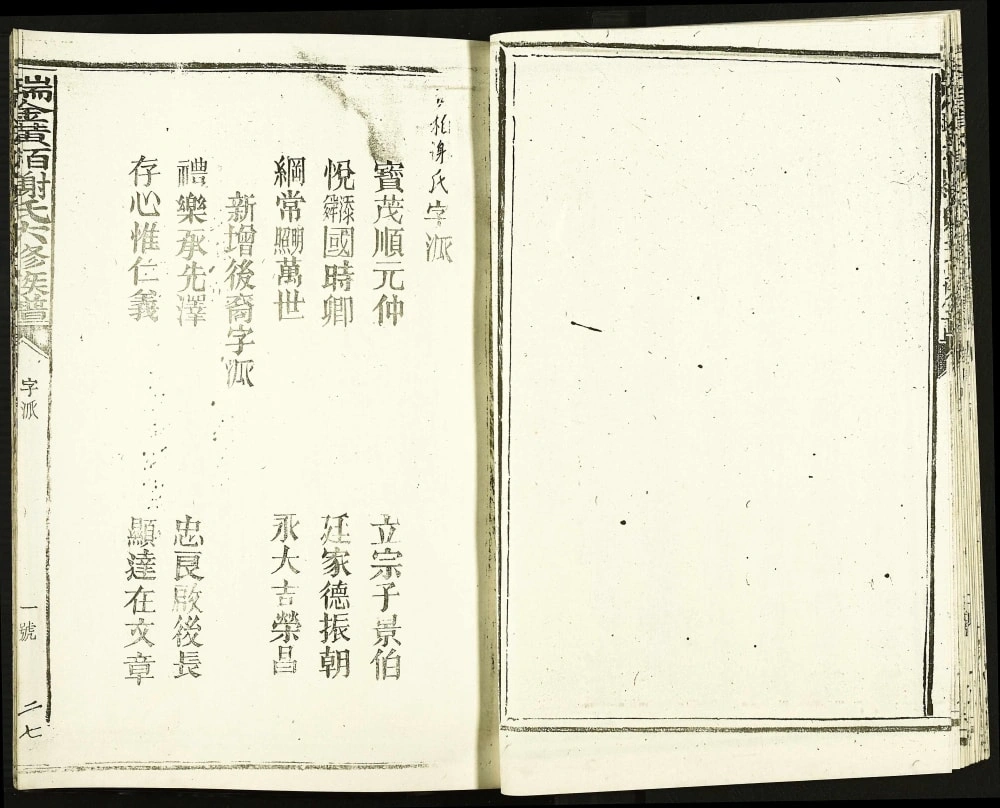 柏謝氏字派
寳茂順元仲 立宗子景伯
悅添舜國時卿 廷家德振朝
綱常明照萬世 永大吉榮昌
新增後裔字派
禮樂承先澤 忠良啟後長
存心惟仁義 顯達在文章
瑞金黃栢謝氏六修族譜
字派
一號
二七